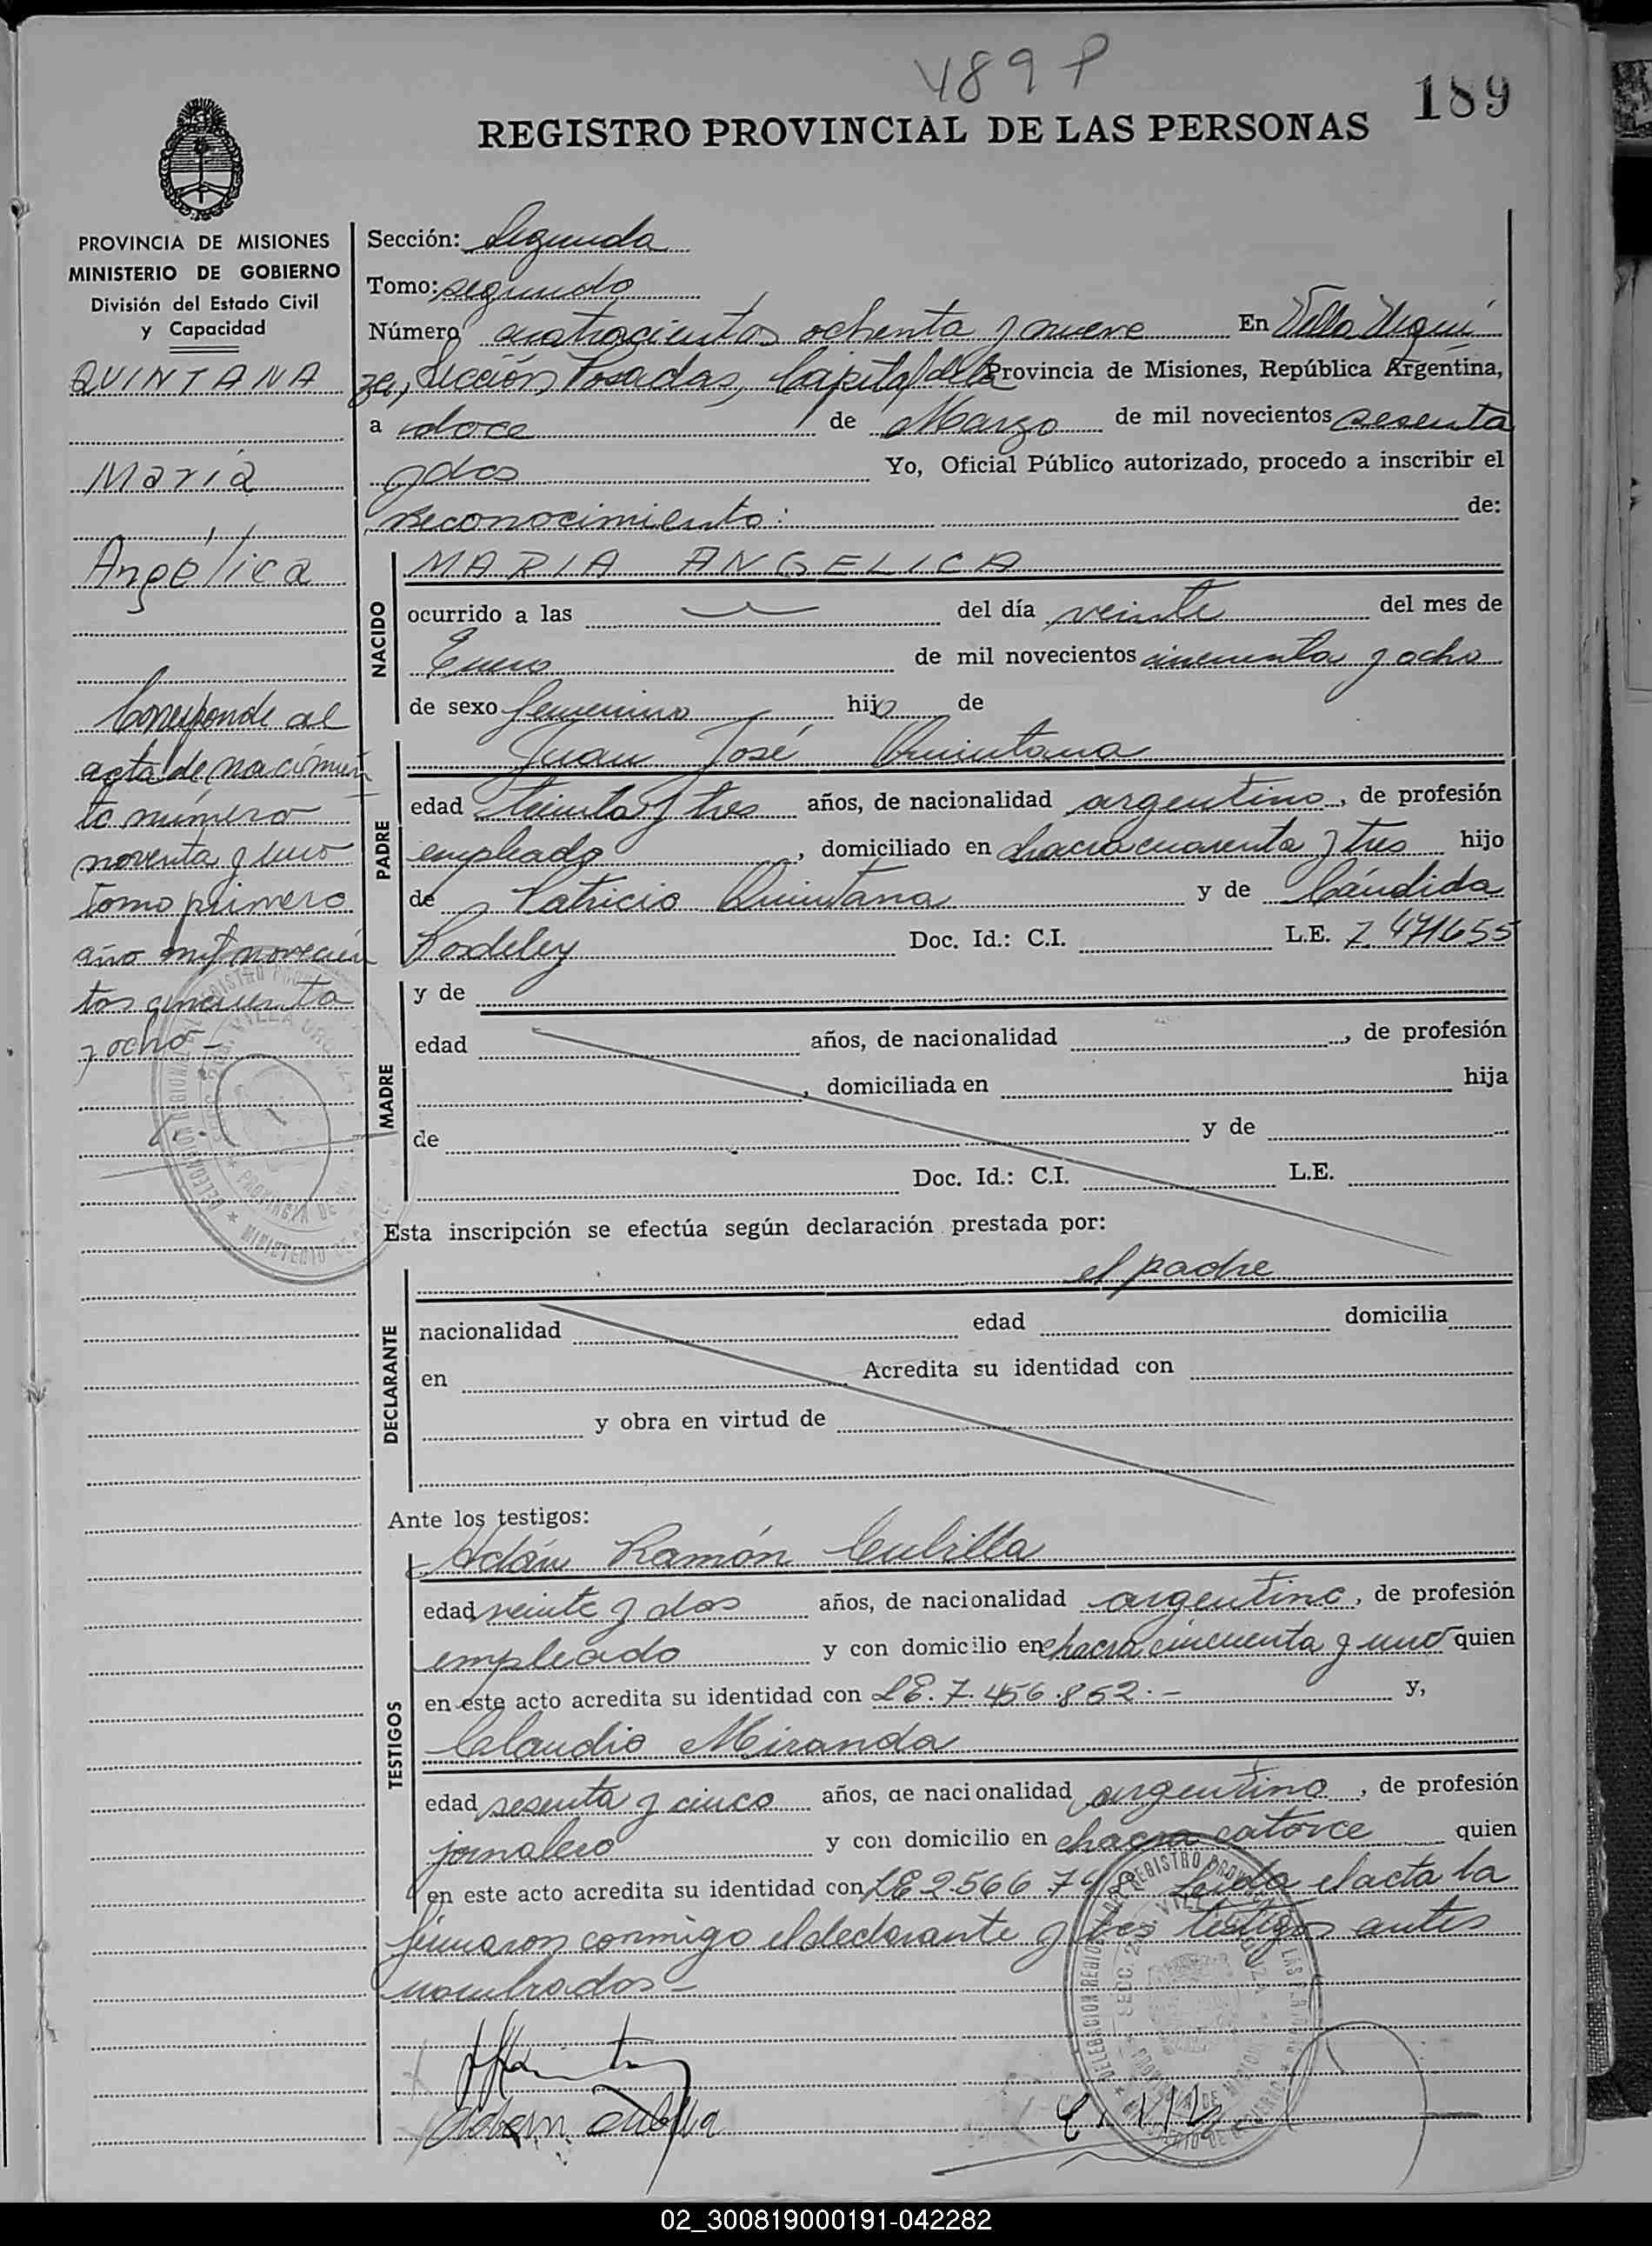 489 P
189
REGISTRO PROVINCIAL DE LAS PERSONAS
PROVINCIA DE MISIONES
MINISTERIO DE GOBIERNO
División del Estado Civil
y Capacidad
QUINTANA
María
Angélica
Corresponde al
acta de nacimien
to número
noventa y uno
Tomo primero
año mil novecien
tos cincuenta
y ocho -
Sección: Segunda
Tomo: segundo
Número cuatrocientos ochenta y nueve En Villa Urqui
za, Sección Posadas, Capital de la Provincia de Misiones, República Argentina,
a doce de Marzo de mil novecientos sesenta
y dos Yo, Oficial Público autorizado, procedo a inscribir el
reconocimiento: de:
NACIDO
MARIA ANGELICA
ocurrido a las del día veinte del mes de
Enero de mil novecientos cincuenta y ocho
de sexo femenino hija de
PADRE
Juan José Quintana
edad treinta y tres años, de nacionalidad argentino, de profesión
empleado, domiciliado en chacra cuarenta y tres hijo
de Patricio Quintana y de Cándida
Doc. Id.: C.I. L.E. 7.471655
MADRE
y de
edad años, de nacionalidad , de profesión
, domiciliada en hija
de y de
Doc. Id.: C.I. L.E.
Esta inscripción se efectúa según declaración prestada por:
el padre
DECLARANTE
nacionalidad edad domicilia
en Acredita su identidad con
y obra en virtud de
Ante los testigos:
TESTIGOS
Adán Ramón Cubilla
edad veinte y dos años, de nacionalidad argentino, de profesión
empleado y con domicilio en chacra cincuenta y uno quien
en este acto acredita su identidad con LE. 7.456.852.- y,
Claudio Miranda
edad sesenta y cinco años, de nacionalidad argentino, de profesión
jornalero y con domicilio en chacra catorce quien
en este acto acredita su identidad con LE 2.566 748 Leída el acta la
firmaron conmigo el declarante y los testigos antes
nombrados -
02_300819000191-042282